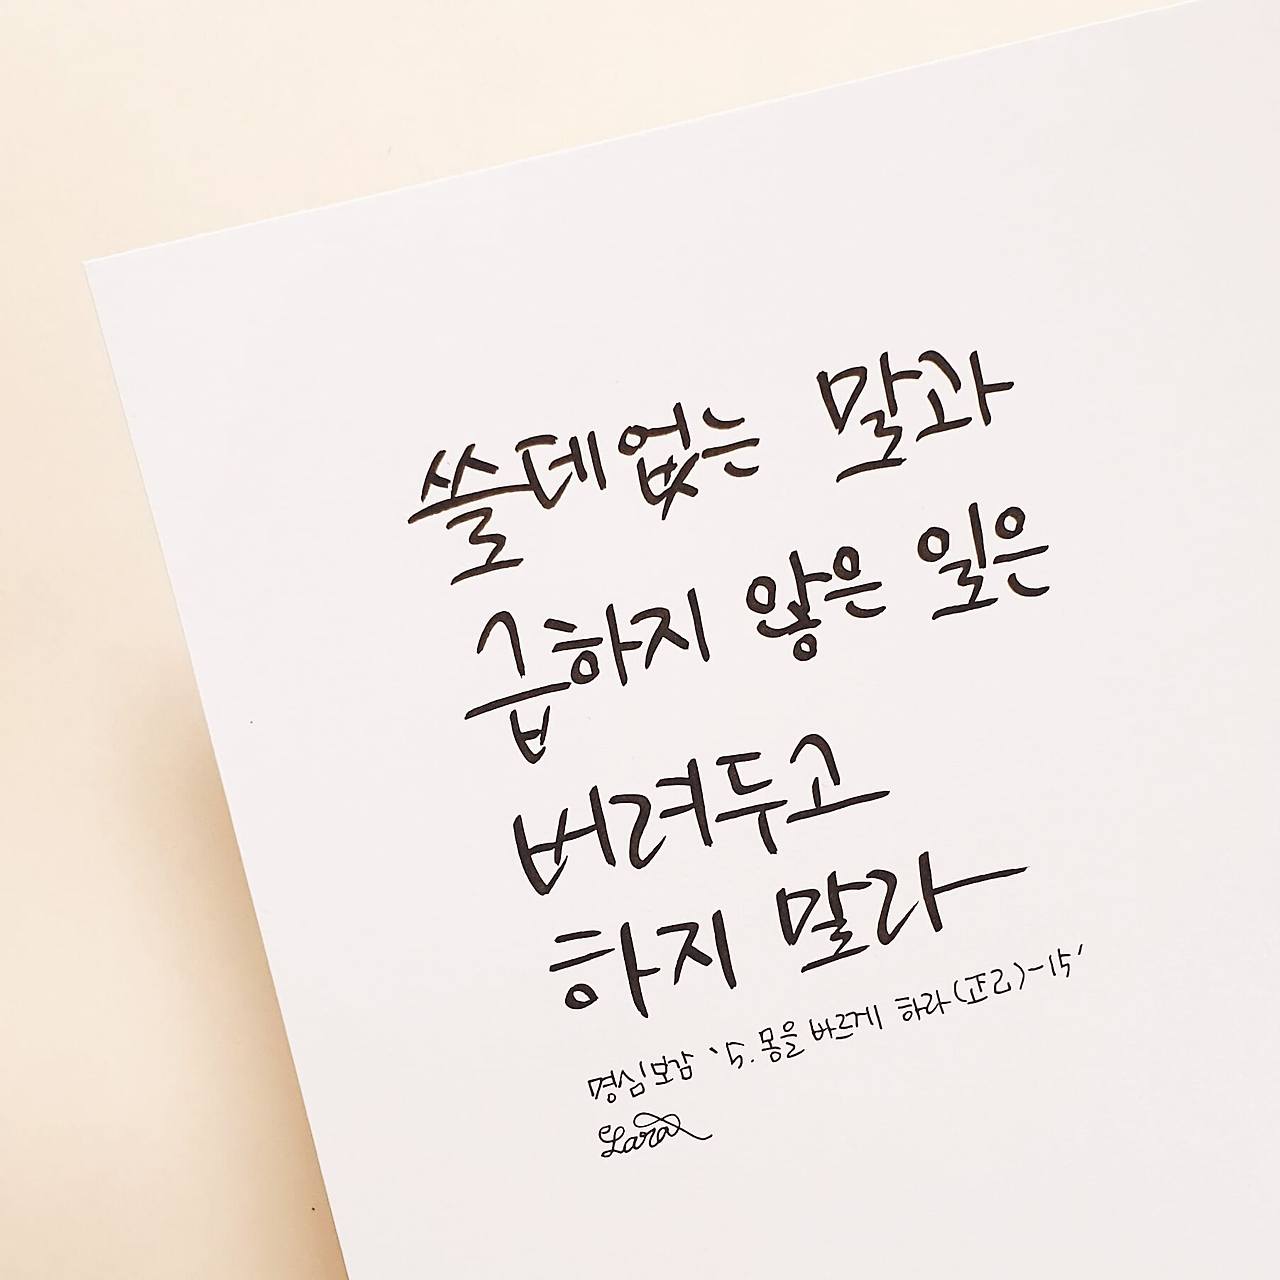 쓸데없는 말과
급하지 않은 일은
버려두고
하지 말라
명심보감 '5. 몸을 바르게 하라(正己)-15'
Lara